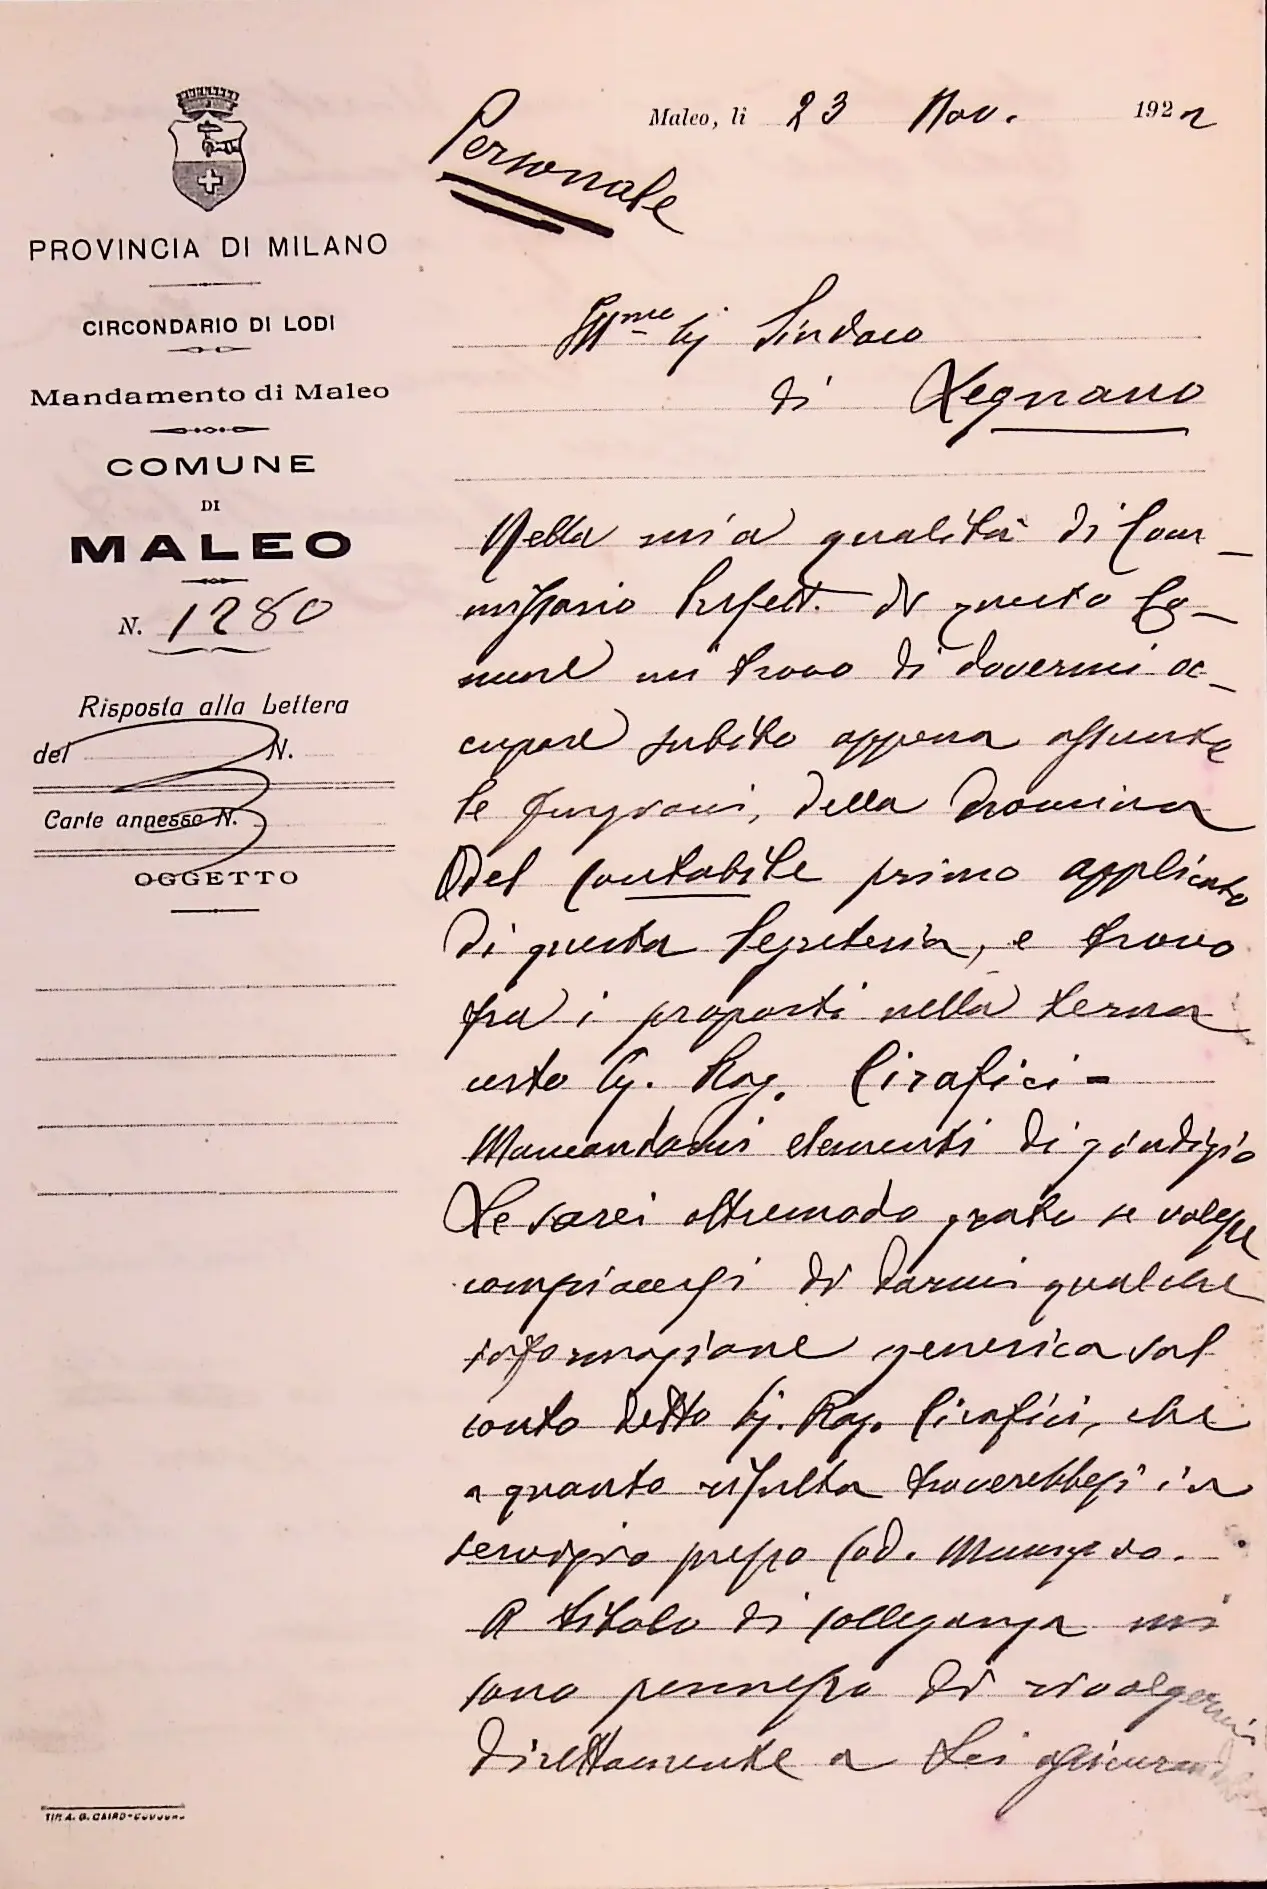 Maleo, li 23 Nov. 1922
Personale
PROVINCIA DI MILANO
CIRCONDARIO DI LODI
Mandamento di Maleo
COMUNE
DI
MALEO
N. 1280
Risposta alla Lettera
del N.
Carte annesse N.
OGGETTO
Ill.me Sig Sindaco
di Legnano
Nella mia qualità di Com-
missario Prefett. di questo Co-
mune mi trovo di dovermi oc-
cupare subito appena assunte
le funzioni, della nomina
del contabile primo applicato
di questa Segreteria, e trovo
fra i proposti nella terna
certo Sig. Rag. Cirafici =
Mancandomi elementi di giudizio
Le sarei oltremodo grato se volesse
compiacersi di darmi qualche
informazione generica sul
conto detto Sig. Rag. Cirafici, che
a quanto risulta troverebbesi in
servizio presso Cod. Municipio.
A titolo di colleganza mi
sono permesso di rivolgermi
direttamente a Lei assicurandola
TIP. A. G. CAIRO-CODOGNO